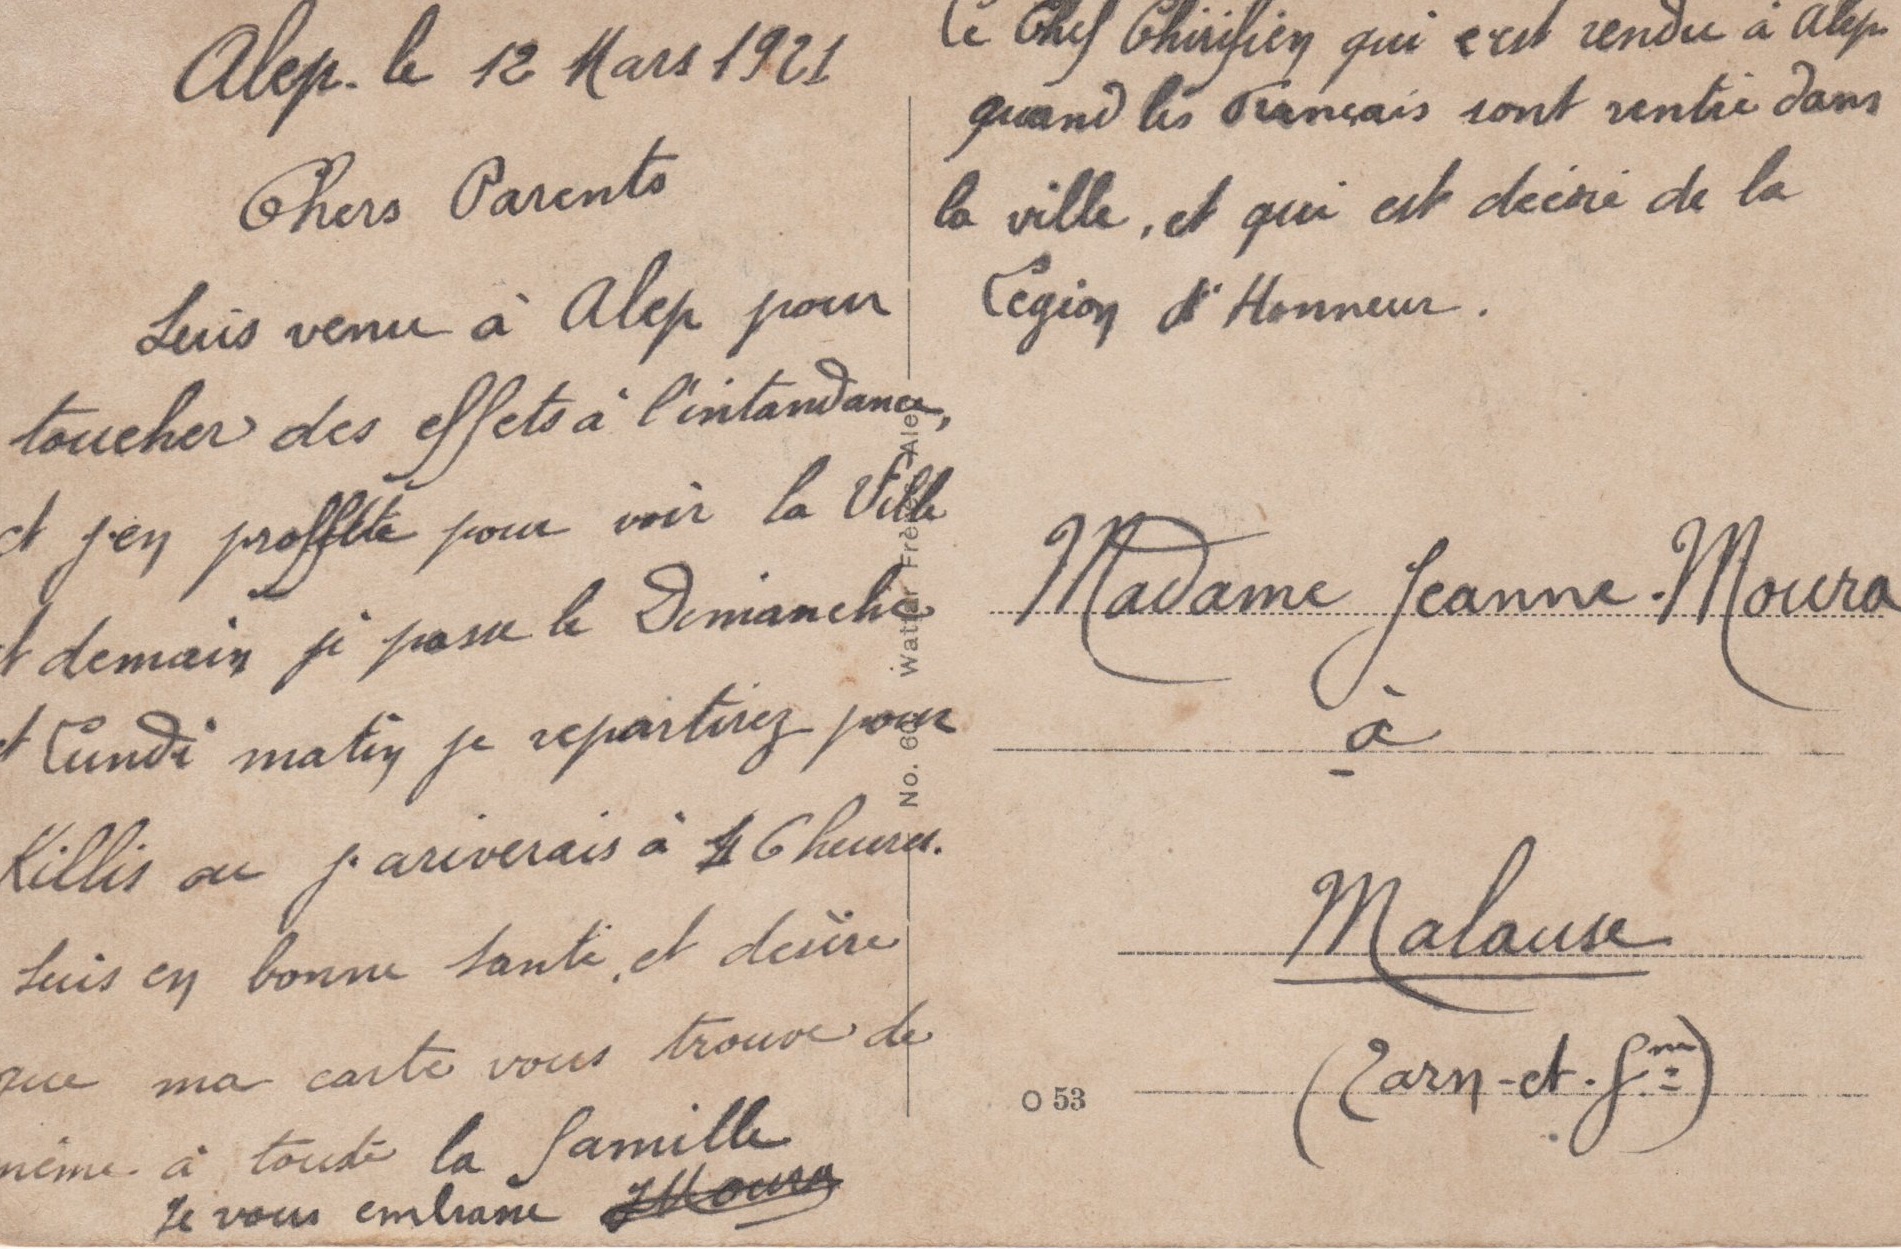 Alep. le 12 Mars 1921
Chers Parents
Suis venu à Alep pour
toucher des effets à l'intandance,
et j'en proffite pour voir la Ville
et demain je passe le Dimanche
et Lundi matin je repartirez pour
Killis ou j'ariverais à 16 heures.
Suis en bonne santé, et desire
que ma carte vous trouve de
même à toute la famille
Je vous embrasse JMoura
Le Chef Chirifien qui c'est rendu à Alep
quand les Français sont rentré dans
la ville, et qui est decoré de la
Legion d'Honneur.
No. 60 Wattar Frères Alep
Madame Jeanne Moura
à
Malause
(Tarn-et-Gne)
O 53